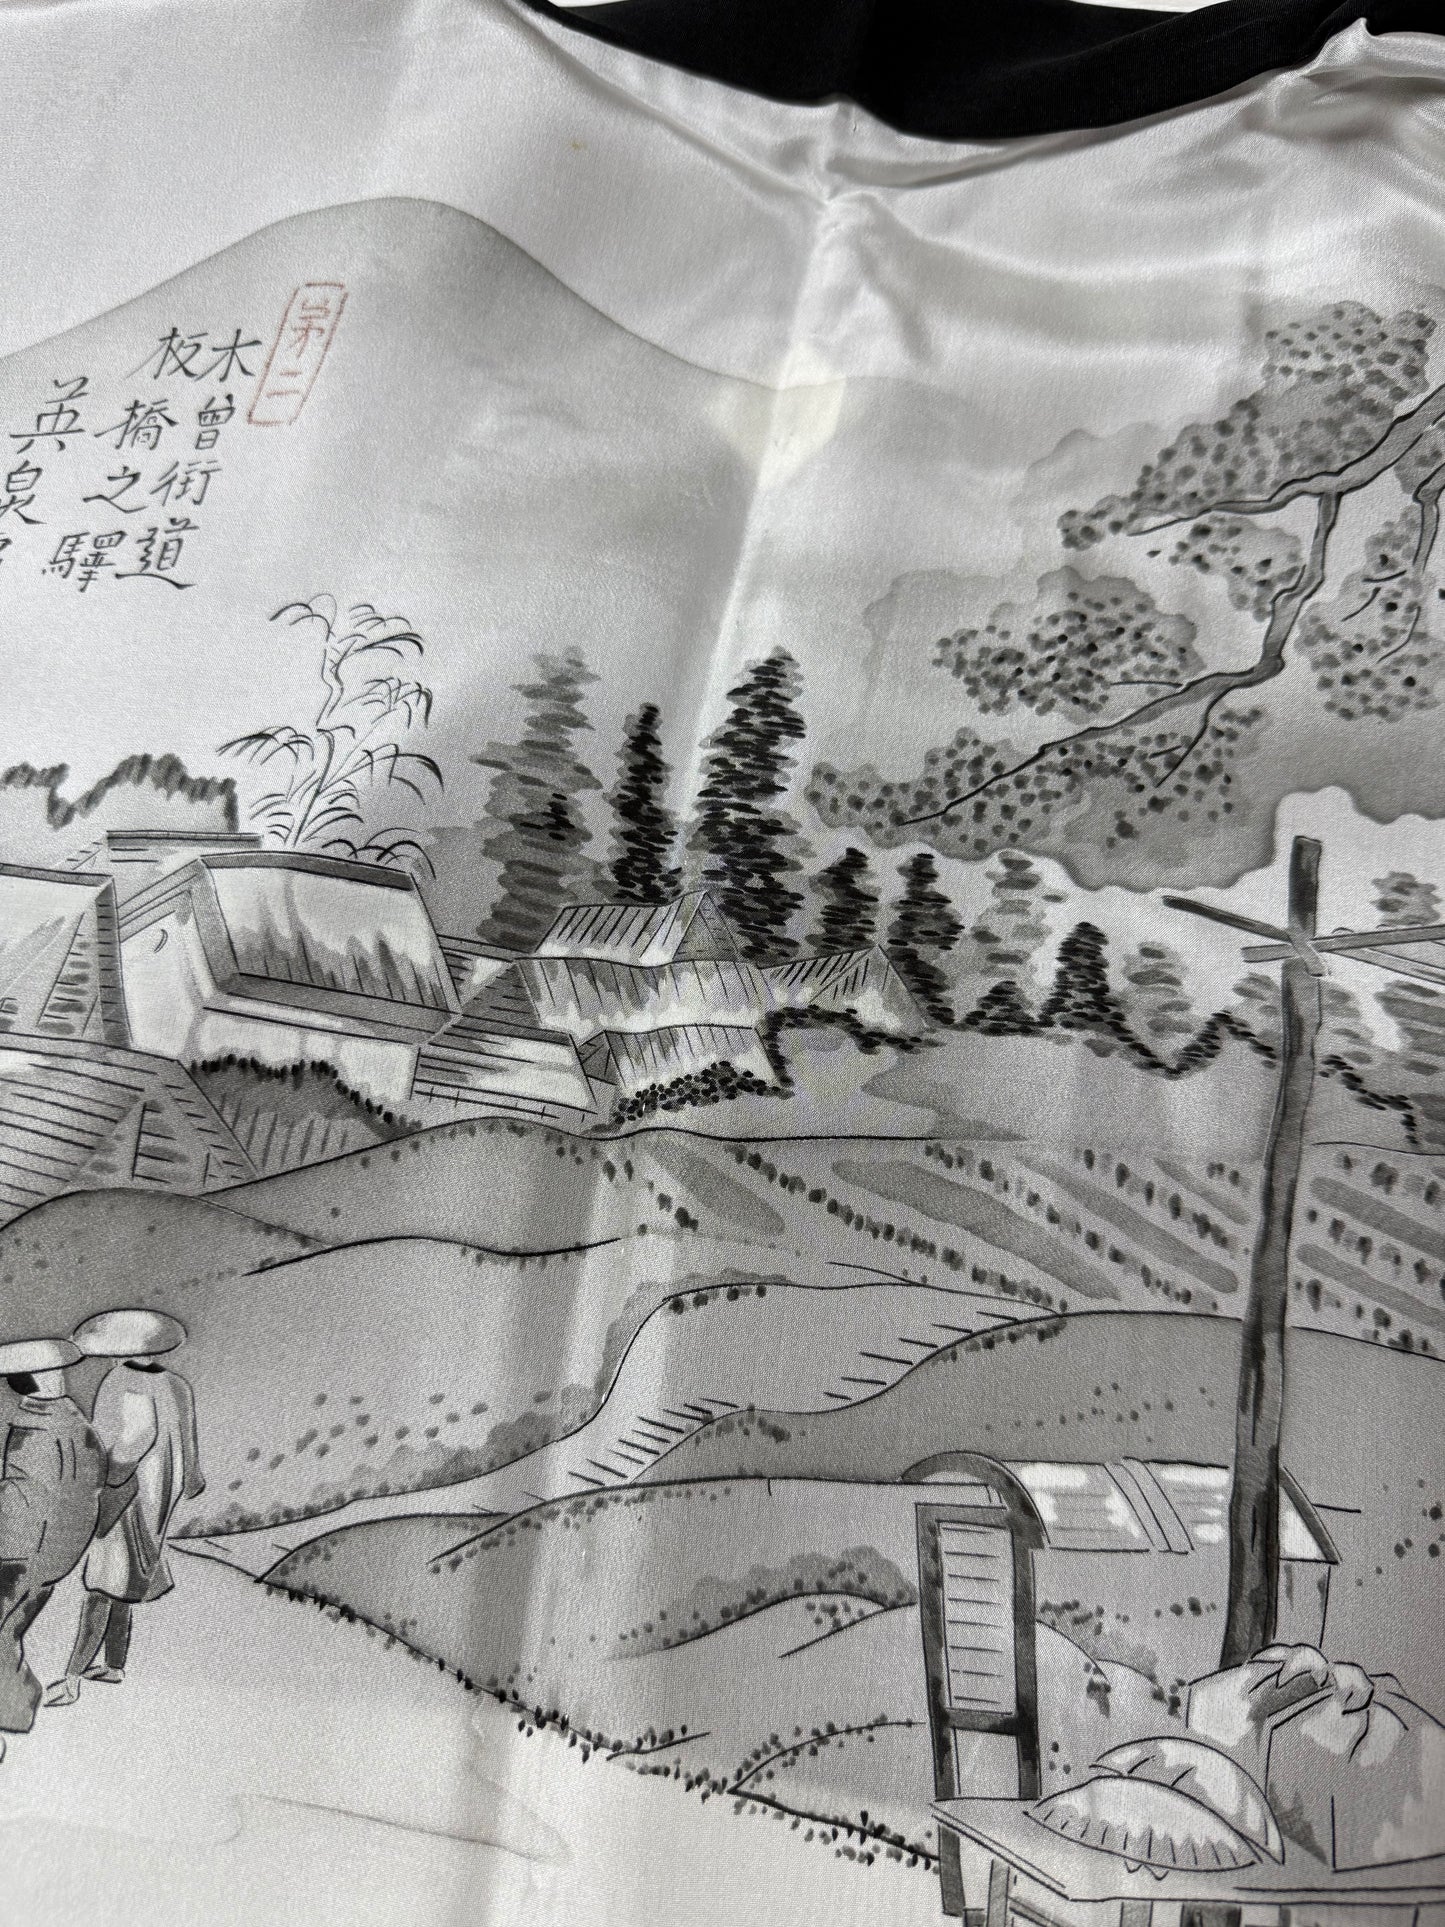 第二
木曽街道
板橋之驛
英泉